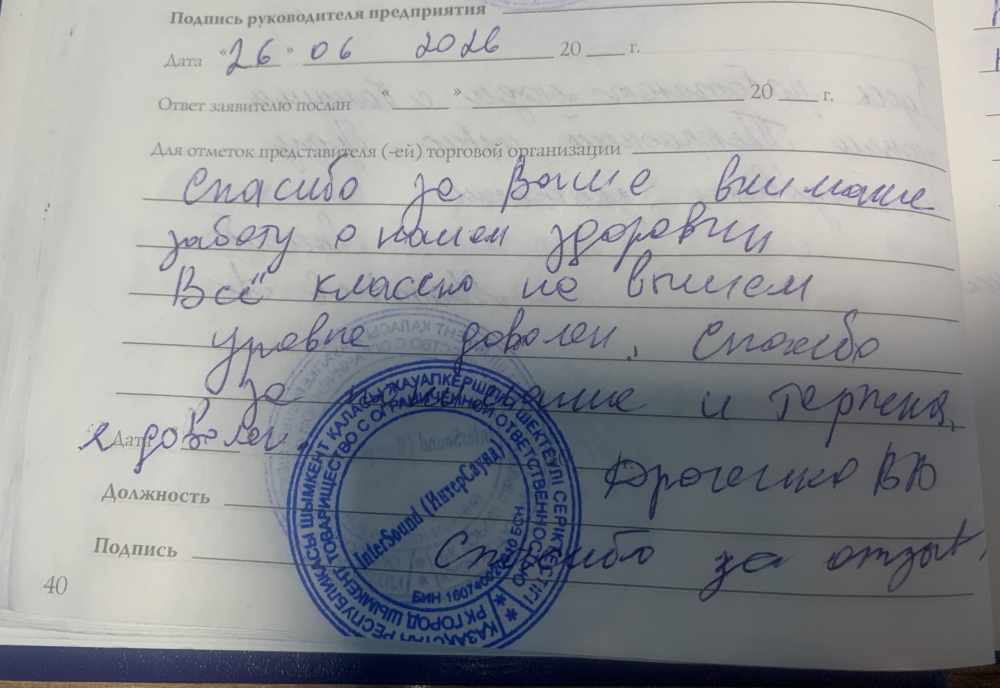 Подпись руководителя предприятия
Дата "26" 06 2026 20 г.
Ответ заявителю послан " " 20 г.
Для отметок представителя (-ей) торговой организации
Спасибо за Ваше внимание
заботу о нашем здоровии
Всё классно на вышем
уровне доволен, Спасибо
за и терпения,
Дата я доволен.
ВВ
Должность
Спасибо за отзыв.
Подпись
40
ҚАЗАҚСТАН РЕСПУБЛИКАСЫ ШЫМКЕНТ ҚАЛАСЫ ЖАУАПКЕРШІЛІГІ ШЕКТЕУЛІ СЕРІКТЕСТІГІ
РК ГОРОД ШЫМКЕНТ ТОВАРИЩЕСТВО С ОГРАНИЧЕННОЙ ОТВЕТСТВЕННОСТЬЮ
InterSound (ИнтерСаунд)
БИН БСН